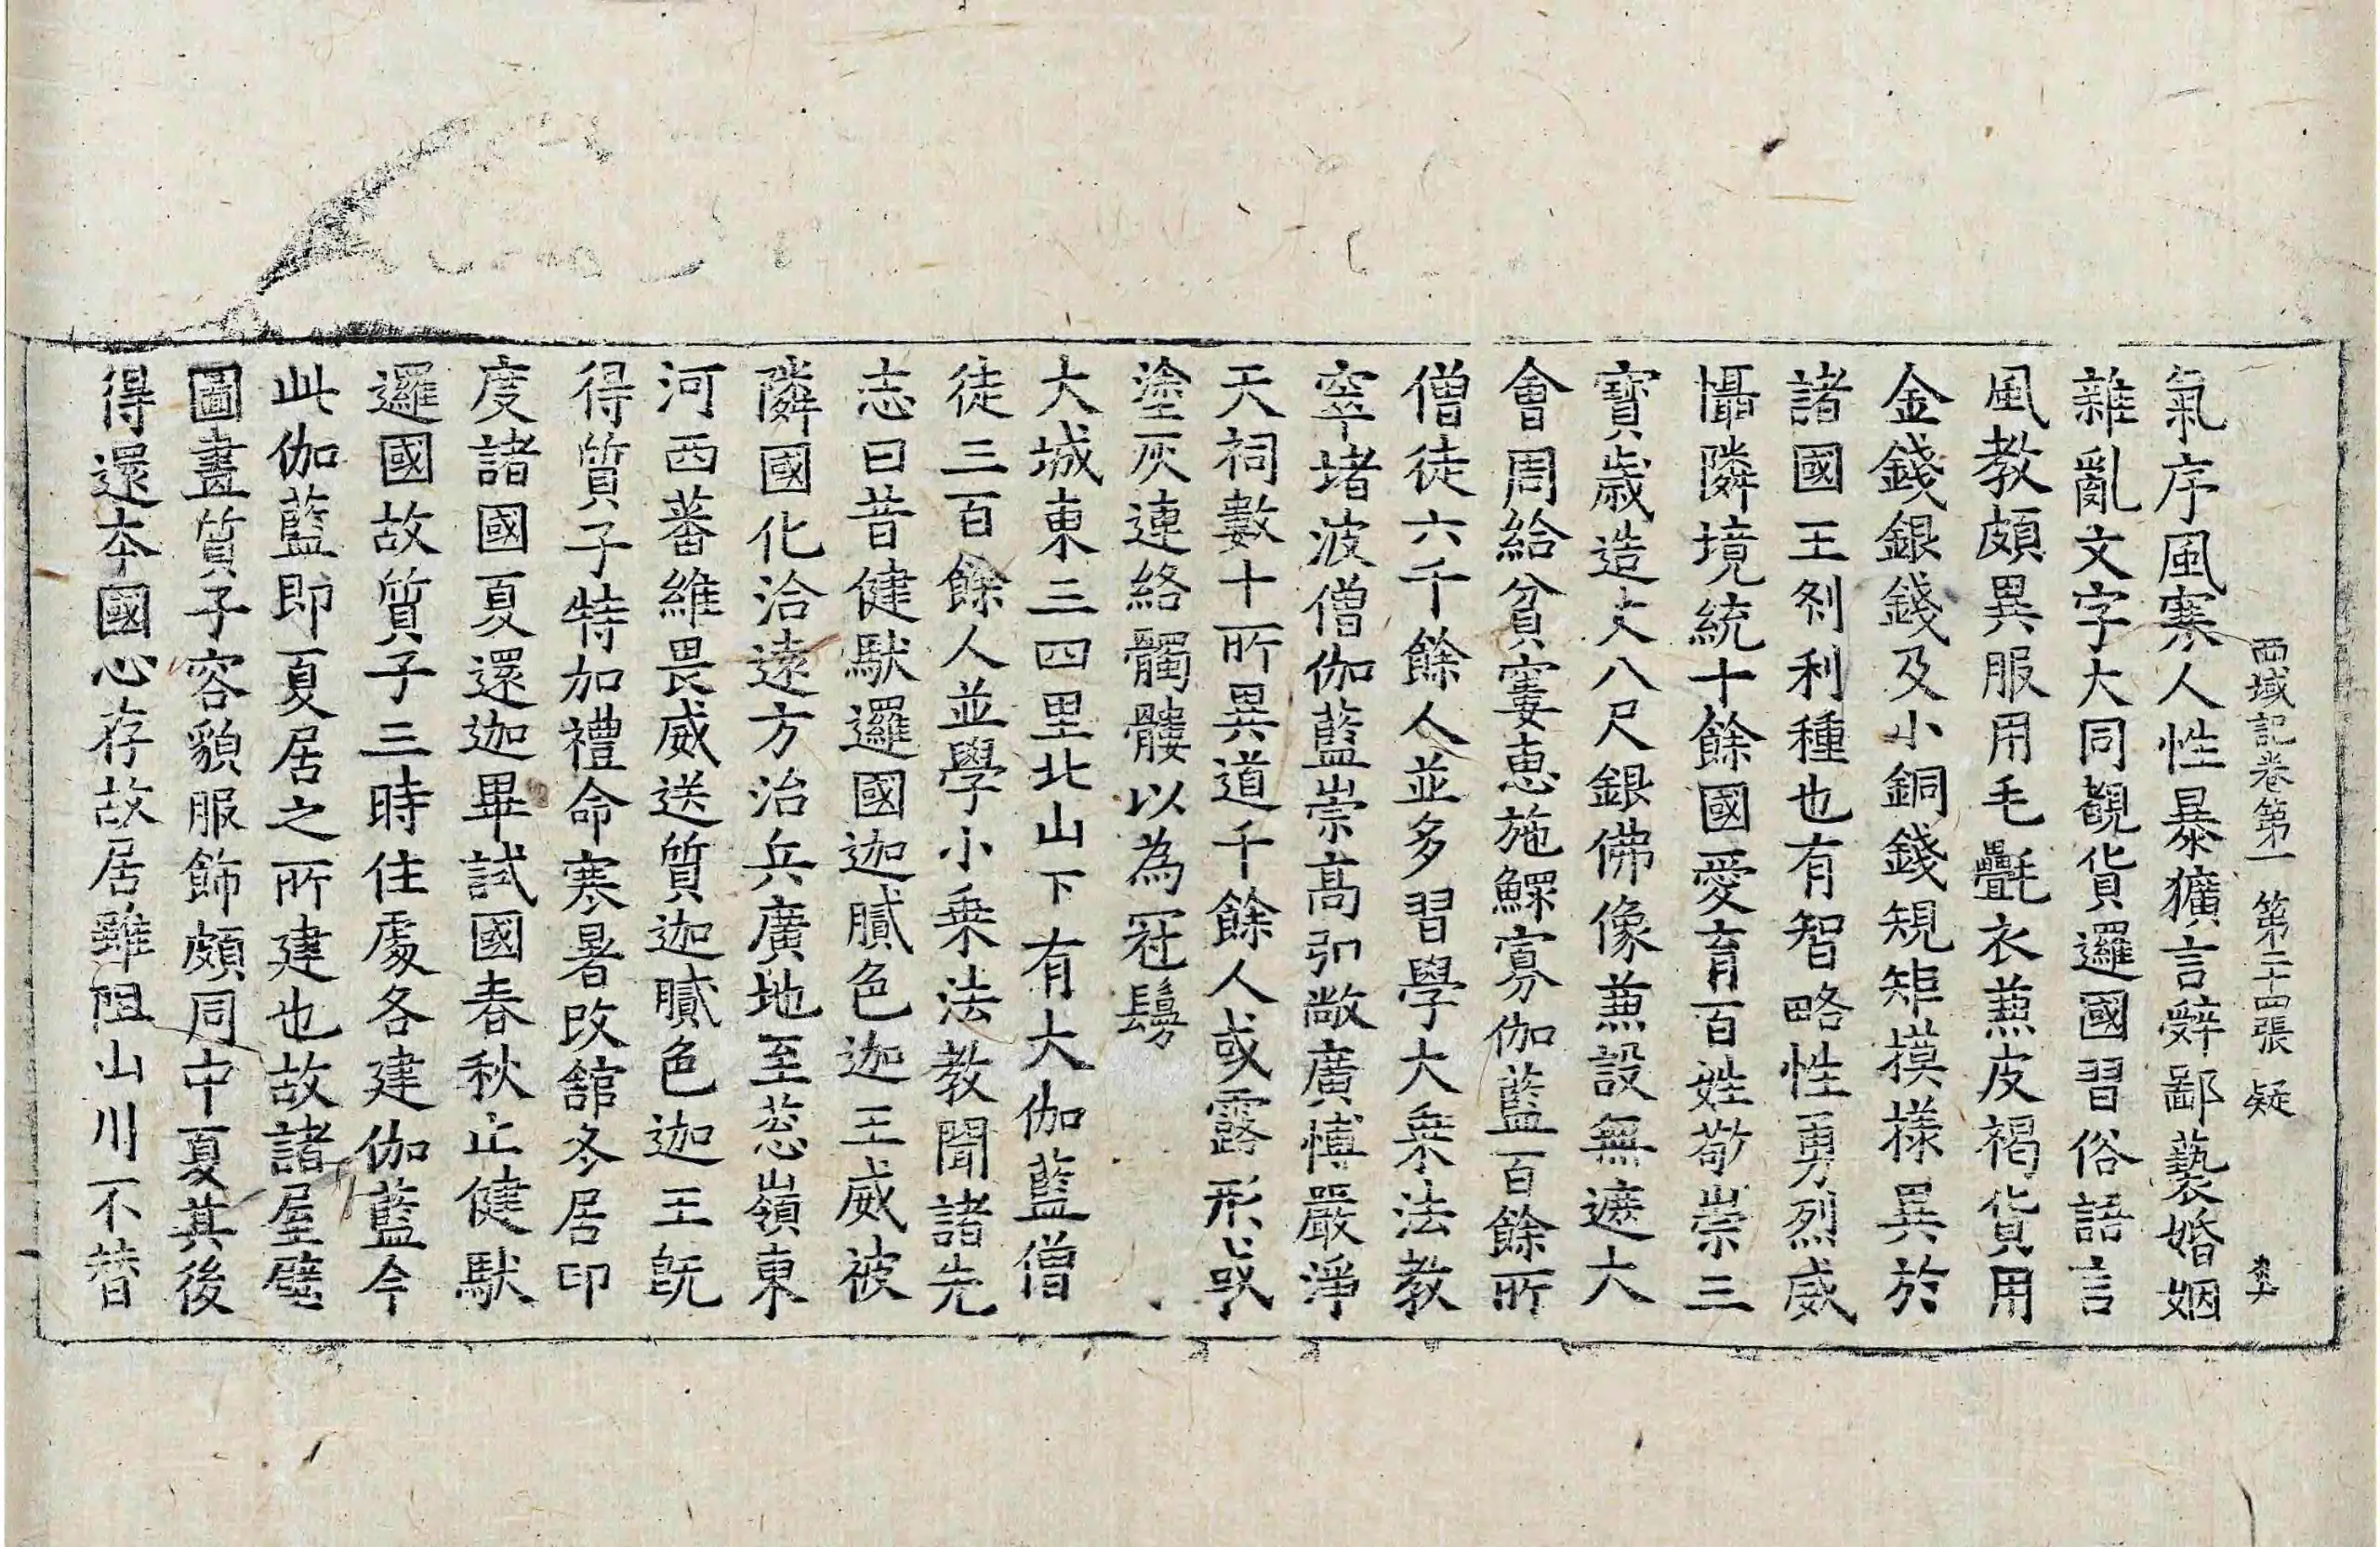 西域記卷第一 第二十四張 疑
氣序風寒人性暴獷言辭鄙褻婚姻
雜亂文字大同覩貨邏國習俗語言
風教頗異服用毛㲲衣兼皮褐貨用
金錢銀錢及小銅錢規矩摸樣異於
諸國王刹利種也有智略性勇烈威
懾隣境統十餘國愛育百姓敬崇三
寶歳造丈八尺銀佛像兼設無遮大
會周給貧窶惠施鰥寡伽藍百餘所
僧徒六千餘人並多習學大乗法教
窣堵波僧伽藍崇高弘敞廣博嚴淨
天祠數十所異道千餘人或露形或
塗灰連絡髑髏以為冠鬘
大城東三四里北山下有大伽藍僧
徒三百餘人並學小乗法教聞諸先
志曰昔健馱邏國迦膩色迦王威被
隣國化洽遠方治兵廣地至葱嶺東
河西蕃維畏威送質迦膩色迦王旣
得質子特加禮命寒暑改舘冬居印
度諸國夏還迦畢試國春秋止健馱
邏國故質子三時住處各建伽藍今
此伽藍即夏居之所建也故諸屋壁
圖畫質子容貌服飾頗同中夏其後
得還本國心存故居雖阻山川不替